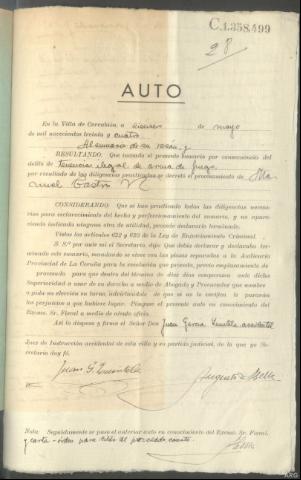 C.1.358.499
28
AUTO
En la Villa de Corcubión a de mayo
de mil novecientos treinta y cuatro.
Al sumario de su razón y
RESULTANDO: Que incoado el presente sumario por consecuencia del
delito de tenencia ilegal de arma de fuego
por resultado de las diligencias practicadas se decretó el procesamiento de Ma-
nuel Castro
CONSIDERANDO: Que se han practicado todas las diligencias necesa-
rias para esclarecimiento del hecho y perfeccionamiento del sumario, y no apare-
ciendo indicada ninguna otra de utilidad, procede declararlo terminado.
Vistos los artículos 622 y 623 de la Ley de Enjuiciamiento Criminal.
S. S.ª por ante mí el Secretario, dijo: Que debía declarar y declaraba termi-
nado este sumario, mandando se eleve con las piezas separadas a la Audiencia
Provincial de La Coruña para la resolución que proceda, previo emplazamiento de
procesado para que dentro del término de diez días comparezca ante dicha
Superioridad a usar de su derecho a medio de Abogado y Procurador que nombre
o pida su elección en turno, advirtiéndole de que si no lo verifica le pararán
los perjuicios a que hubiere lugar. Póngase el presente auto en conocimiento del
Excmo. Sr. Fiscal a medio de atento oficio.
Así lo dispuso y firma el Señor Don Juan accidental
Juez de Instrucción accidental de esta villa y su partido judicial, de lo que yo Se-
cretario doy fé.
Juan G.
Augusto
Nota: Seguidamente se puso el anterior auto en conocimiento del Excmo. Sr. Fiscal,
y carta-orden para del procesado
ARG